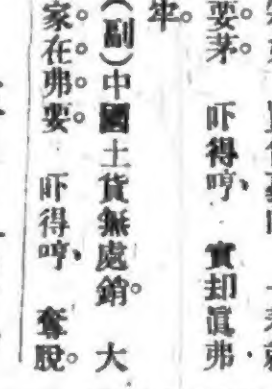 要茅。 吓得哼、 實却眞弗
牢。
(副)中國土貨無處銷。 大
家在弗要。 吓得哼、 奪脫。